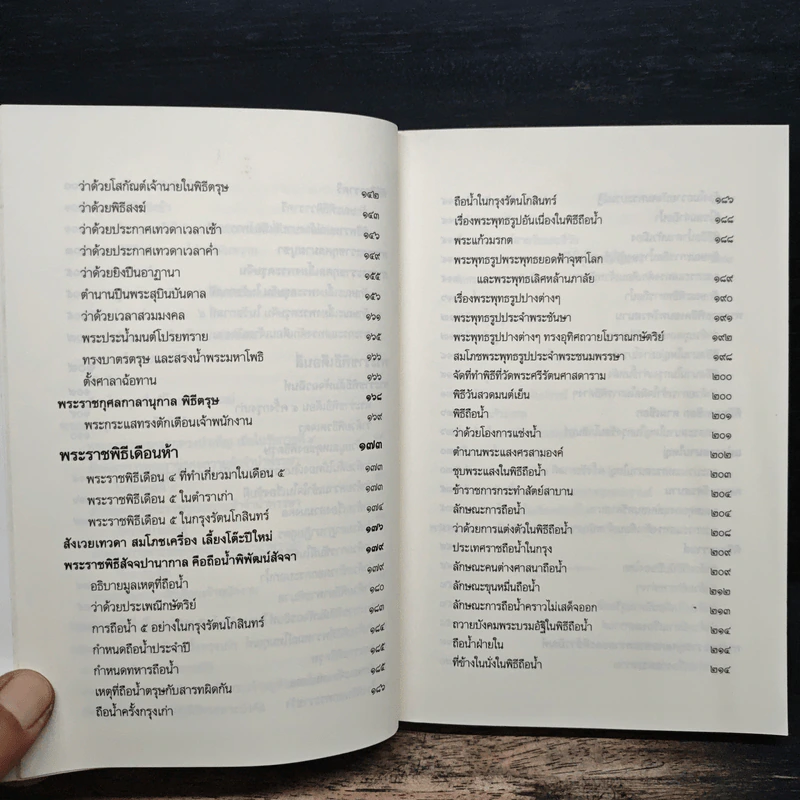 ว่าด้วยโสกัณต์เจ้านายในพิธีตรุษ ๑๔๒
ว่าด้วยพิธีสงฆ์ ๑๔๓
ว่าด้วยประกาศเทวดาเวลาเช้า ๑๔๖
ว่าด้วยประกาศเทวดาเวลาค่ำ ๑๔๙
ว่าด้วยยิงปืนอาฏานา ๑๕๕
ตำนานปืนพระสุบินบันดาล ๑๕๖
ว่าด้วยเวลาสวมมงคล ๑๖๑
พระประน้ำมนต์โปรยทราย ๑๖๕
ทรงบาตรตรุษ และสรงน้ำพระมหาโพธิ ๑๖๖
ตั้งศาลาฉ้อทาน ๑๖๖
พระราชกุศลกาลานุกาล พิธีตรุษ ๑๖๘
พระกระแสทรงตักเตือนเจ้าพนักงาน ๑๖๙
พระราชพิธีเดือนห้า ๑๗๓
พระราชพิธีเดือน ๔ ที่ทำเกี่ยวมาในเดือน ๕ ๑๗๓
พระราชพิธีเดือน ๕ ในตำราเก่า ๑๗๓
พระราชพิธีเดือน ๕ ในกรุงรัตนโกสินทร์ ๑๗๔
สังเวยเทวดา สมโภชเครื่อง เลี้ยงโต๊ะปีใหม่ ๑๗๖
พระราชพิธีสัจจปานากาล คือถือน้ำพิพัฒน์สัจจา ๑๗๙
อธิบายมูลเหตุที่ถือน้ำ ๑๗๙
ว่าด้วยประเพณีกษัตริย์ ๑๘๐
การถือน้ำ ๕ อย่างในกรุงรัตนโกสินทร์ ๑๘๓
กำหนดถือน้ำประจำปี ๑๘๔
กำหนดทหารถือน้ำ ๑๘๕
เหตุที่ถือน้ำตรุษกับสารทผิดกัน ๑๘๕
ถือน้ำครั้งกรุงเก่า ๑๘๖
ถือน้ำในกรุงรัตนโกสินทร์ ๑๘๖
เรื่องพระพุทธรูปอันเนื่องในพิธีถือน้ำ ๑๘๘
พระแก้วมรกต ๑๘๘
พระพุทธรูปพระพุทธยอดฟ้าจุฬาโลก
และพระพุทธเลิศหล้านภาลัย ๑๘๙
เรื่องพระพุทธรูปปางต่างๆ ๑๙๐
พระพุทธรูปประจำพระชันษา ๑๙๑
พระพุทธรูปปางต่างๆ ทรงอุทิศถวายโบราณกษัตริย์ ๑๙๒
สมโภชพระพุทธรูปประจำพระชนมพรรษา ๑๙๘
จัดที่ทำพิธีที่วัดพระศรีรัตนศาสดาราม ๒๐๐
พิธีวันสวดมนต์เย็น ๒๐๐
พิธีถือน้ำ ๒๐๑
ว่าด้วยโองการแช่งน้ำ ๒๐๑
ตำนานพระแสงศรสามองค์ ๒๐๒
ชุบพระแสงในพิธีถือน้ำ ๒๐๓
ข้าราชการกระทำสัตย์สาบาน ๒๐๔
ลักษณะการถือน้ำ ๒๐๔
ว่าด้วยการแต่งตัวในพิธีถือน้ำ ๒๐๘
ประเทศราชถือน้ำในกรุง ๒๐๙
ลักษณะคนต่างศาสนาถือน้ำ ๒๐๙
ลักษณะขุนหมื่นถือน้ำ ๒๑๒
ลักษณะการถือน้ำคราวไม่เสด็จออก ๒๑๓
ถวายบังคมพระบรมอัฐิในพิธีถือน้ำ ๒๑๔
ถือน้ำฝ่ายใน ๒๑๔
ที่ข้างในนั่งในพิธีถือน้ำ ๒๑๔